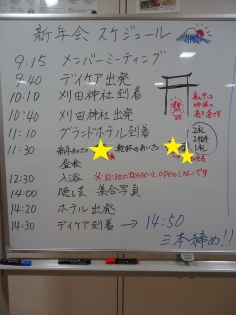 新年会 スケジュール
9:15 メンバーミーティング
9:40 デイケア出発
10:10 刈田神社到着
10:40 刈田神社出発
11:10 グランドホテル到着
11:30 新年あいさつ 乾杯のあいさつ
昼食
12:30 入浴 ※12:30にならないとopenしないです
14:00 隠し芸 集合写真
14:20 ホテル出発
14:30 デイケア到着 → 14:50
三本締め!!
真ん中は
神様の
通り道です
2礼
2拍手
1礼